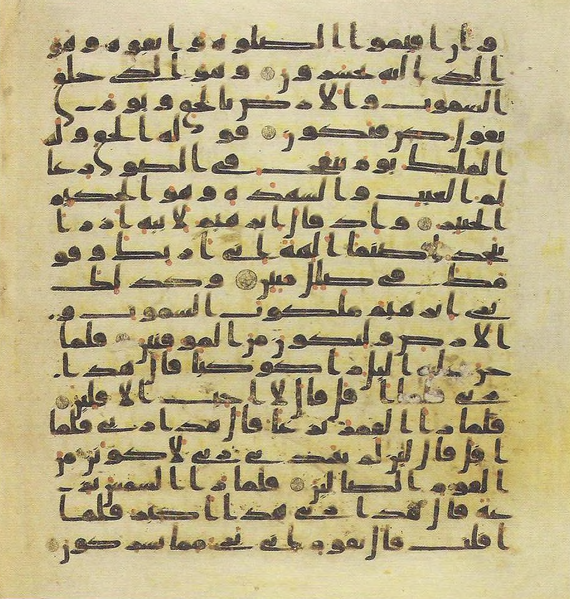 وان اقيموا الصلوة واتقوه وهو
الذي اليه تحشرون وهو الذي خلق
السموت والارض بالحق ويوم
يقول كن فيكون قوله الحق وله
الملك يوم ينفخ في الصور عا
لم الغيب والشهدة وهو الحكيم
الخبير واذ قال ابرهيم لابيه ازر ا
تتخذ اصناما الهة اني اريك وقو
مك في ضلل مبين وكذلك
نري ابرهيم ملكوت السموت و
الارض وليكون من الموقنين فلما
جن عليه اليل را كوكبا قال هذا
ربي فلما افل قال لا احب الافلين
فلما را القمر بزغا قال هذا ربي فلما
افل قال لئن لم يهدني ربي لاكونن من
القوم الضالين فلما را الشمس بز
غة قال هذا ربي هذا اكبر فلما
افلت قال يقوم اني بري مما تشركون